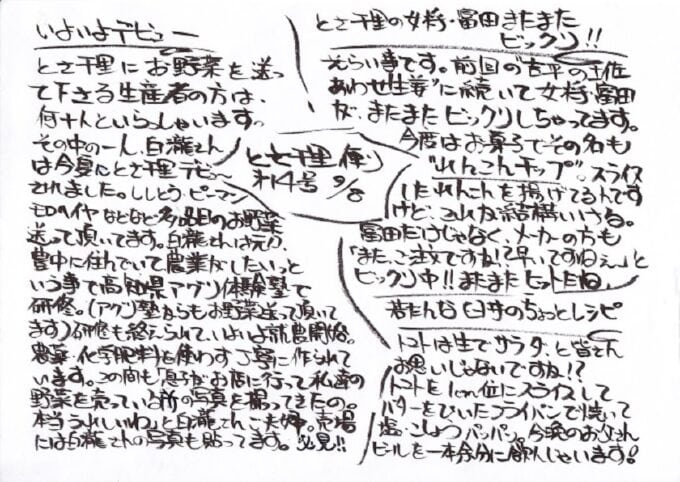 いよいよデビュー
とさ千里にお野菜を送っ
て下さる生産者の方は、
何十人といらっしゃいます。
その中の一人、白瀧さん
は今夏にとさ千里デビュー
されました。ししとう・ピーマン
モロヘイヤなどなど多品目のお野菜
送って頂いてます。白瀧さんは元々、
豊中に住んでいて農業がしたいっと
いう事で高知県アグリ体験塾で
研修。(アグリ塾からもお野菜送って頂いて
ます)研修も終えられて、いよいよ就農開始。
農薬・化学肥料を使わず丁寧に作られて
います。この間も「息子がお店に行って私達の
野菜を売っている所の写真を撮ってきたの。
本当うれしいわ」と白瀧さんご夫婦。売場
には白瀧さんの写真も貼ってます。必見!!
とさ千里便り
第14号 9/8
とさ千里の女将・富田またまた
ビックリ!!
えらい事です。前回の
あわせ生姜"に続いて女将・富田
が、またまたビックリしちゃってます。
今度はお菓子でその名も
"れんこんチップ"。スライス
したれんこんを揚げてるんです
けど、これが結構いける。
富田だけじゃなく、メーカーの方も
「また、ご注文ですね!?早いですねぇ〜」と
ビックリ中!!またまたヒットだね。
若だんな臼井のちょっとレシピ
トマトは生でサラダ、と皆さん
お思いじゃないですね!?
トマトを1cm位にスライスして
バターをひいたフライパンで焼いて
塩・こしょうパッパッ。今晩のお父さん
ビールを一本余分に飲んじゃいます!